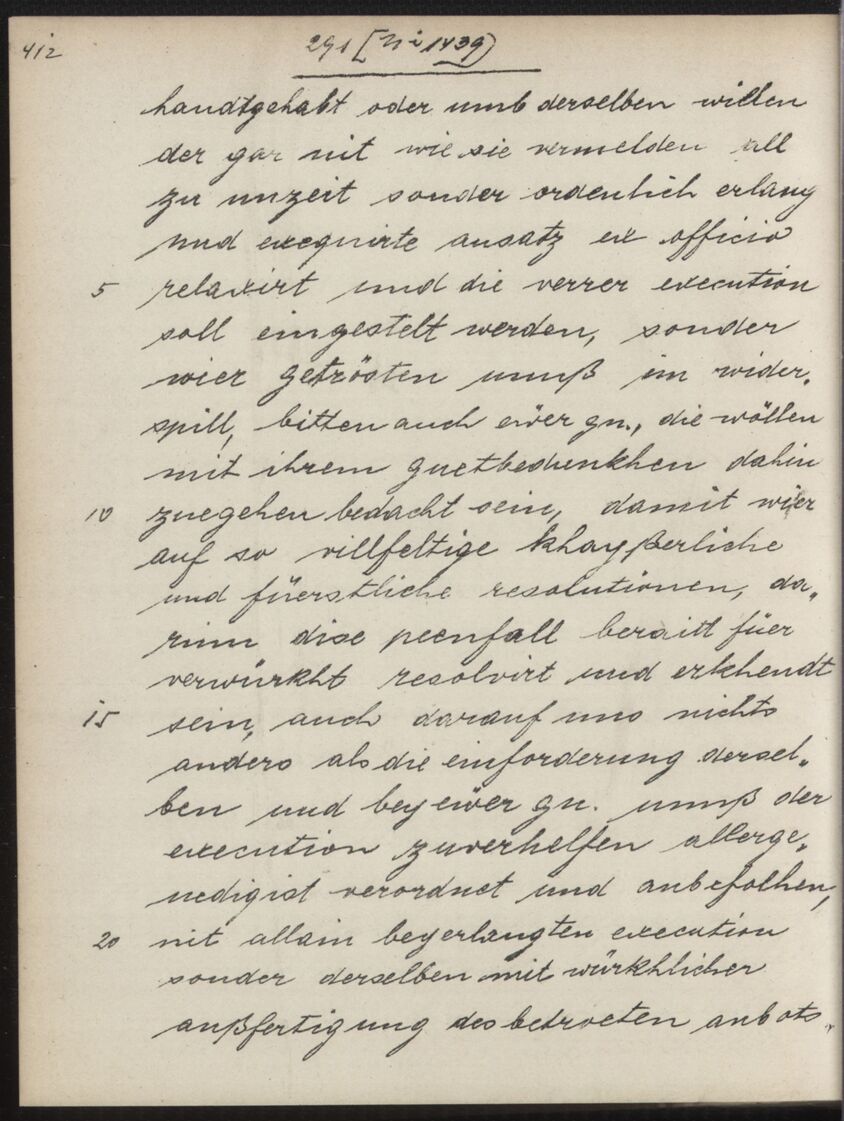 412
291 [Ni 1439)
handtgehabt oder umb derselben willen
der gar nit wie sie vermelden all
zu unzeit sonder ordenlich erlang
und exequirte ansatz ex officio
5 relaxirt und die verrer execution
soll eingestelt werden, sonder
wier getrösten unnß im wider„
spill, bitten auch ewer gn., die wöllen
mit ihrem guetbedunkhen dahin
10 zuegehen bedacht sein, damit wier
auf so villfeltige khayßerliche
und füerstliche resolutionen, da„
rinn dise peenfall beraitt füer
verwürkht resolvirt und erkhendt
15 sein, auch darauf uns nichts
anders als die einforderung dersel„
ben und bey ewer gn. unnß der
execution zuverhelfen allerge„
nedigist verordnet und anbefolhen,
20 nit allain bey erlangten execution
sonder derselben mit würkhlicher
außfertigung des betroeten anbots„